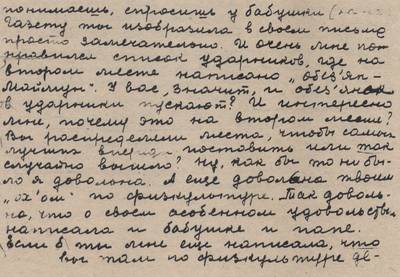 понимаешь, спросишь у бабушки
Газету ты изобразила в своем письме
просто замечательно. И очень мне пон-
нравился список ударников, где на
втором месте написано „обез'ян-
Маймун“. У вас, значит, и обез'янов
в ударники пускают? И интересно
мне, почему это на втором месте?
Вы распределяли места, чтобы самых
лучших вперед поставить или так
случайно вышло? Ну, как бы то ни бы-
ло я довольна. А еще довольна твоим
„ох'ом“ по физкультуре. Так доволь-
на, что о своем особенном удовольствии
написала и бабушке и папе.
Если б ты мне еще написала, что
вы там по физкультуре де-